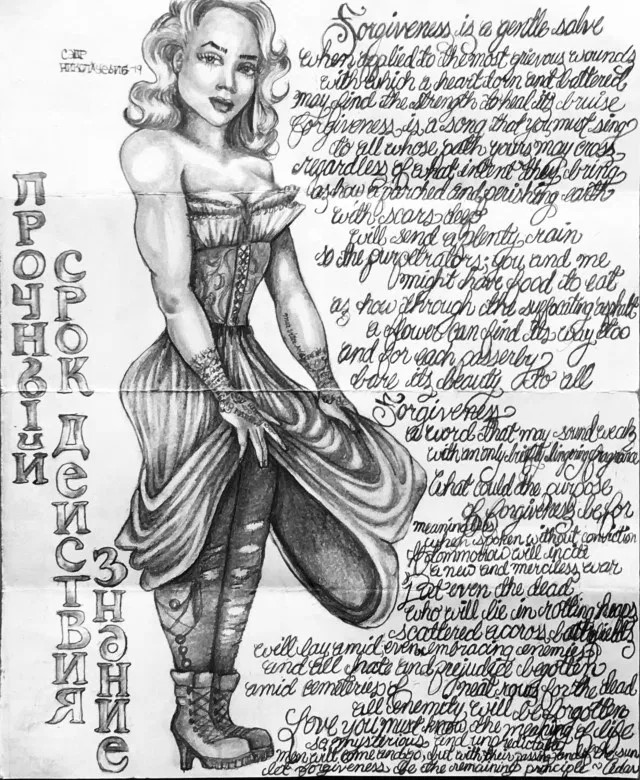 ПРОЧНЫЙ
СРОК ДЕИСТВИЯ
ЗНаНИе
Forgiveness is a gentle salve
when applied to the most grievous wounds
with which a heart torn and battered
may find the strength to heal its bruise
Forgiveness is a song that you must sing
to all whose path yours may cross
regardless of what intent they bring
as how a parched and perishing earth
with scars deep
will send a plenty rain
so the purpetrators; you and me
might have food to eat
as how through the suffocating asphalt
a flower can find its way too
and for each passerby
bare its beauty to all
Forgiveness
a word that may sound weak
with an only lingering fragrance
What could the purpose
of forgiveness be for
meaningless
when spoken without conviction
tommorow will incite
a new and merciless war
Yet even the dead
who will lie in rotting heaps
scattered accross battlefields
will lay amid even embracing enemies
and all hate and prejudice begotten
amid cemeteries of neat rows for the dead
all enemity will be forgotten
Love you must know the meaning of life
so mysterious and unpredictable
men will come and go, but with their passing and of the sun
let forgiveness be the remaining principle